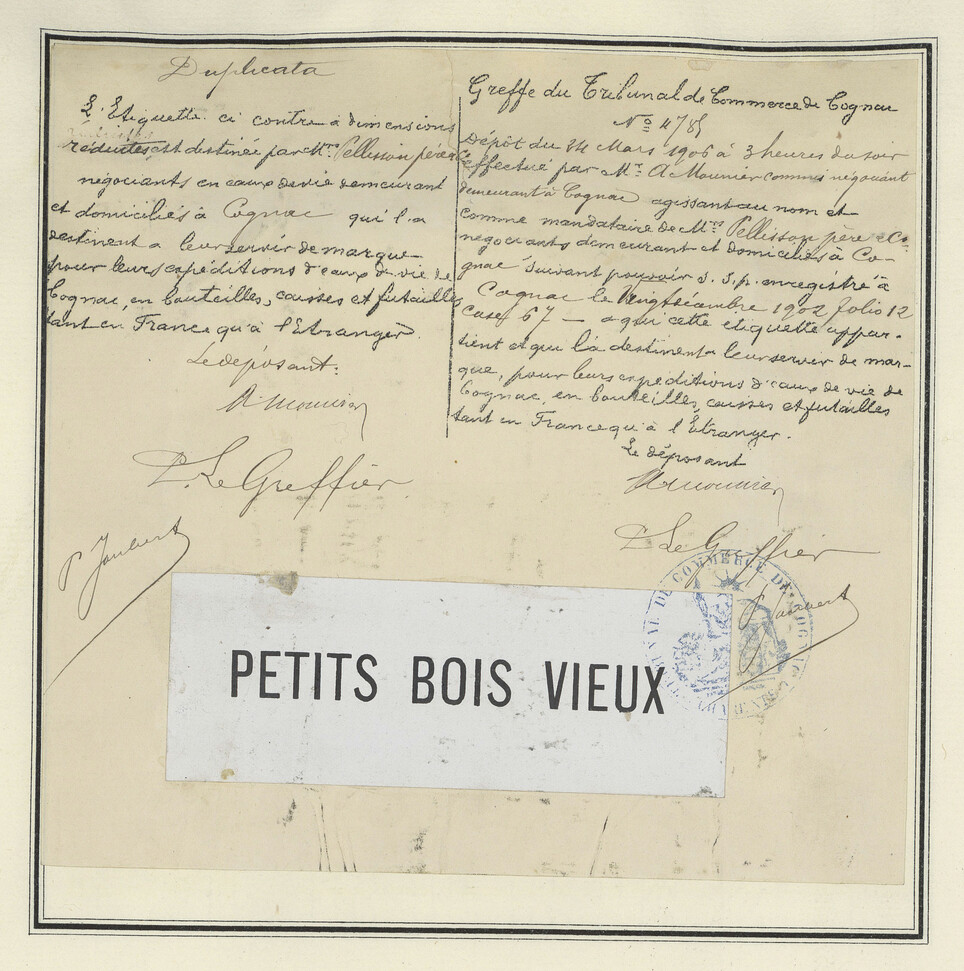 Duplicata
L'Etiquette ci contre à dimensions
réduites est destinée par Mrs Pellisson père & Co
négociants en eaux de vie demeurant
et domiciliés à Cognac qui l'a
destinent a leur servir de marque
pour leurs expéditions d'eaux de vie de
Cognac, en bouteilles, caisses et futailles
tant en France qu'à l'Etranger.
Le déposant:
A Mounier
P. Le Greffier
P Joubert
Greffe du Tribunal de Commerce de Cognac
No 4785
Dépôt du 24 Mars 1906 à 3 heures du soir
effectué par Mr A Mounier commis négociant
demeurant à Cognac agissant au nom et
comme mandataire de Mrs Pellisson père & Co
négociants demeurant et domiciliés à Co-
gnac suivant pouvoir s. s. p. enregistré à
Cognac le Vingt décembre 1902 folio 12
Case 67 — a qui cette étiquette appar-
tient et qui l'a destinent a leur servir de mar-
que, pour leurs expéditions d'eaux de vie de
Cognac, en bouteilles, caisses et futailles
tant en France qu'à l'Etranger.
Le déposant
A Mounier
P Le Greffier
P Joubert
TRIBUNAL DE COMMERCE DE COGNAC
CHARENTE
PETITS BOIS VIEUX